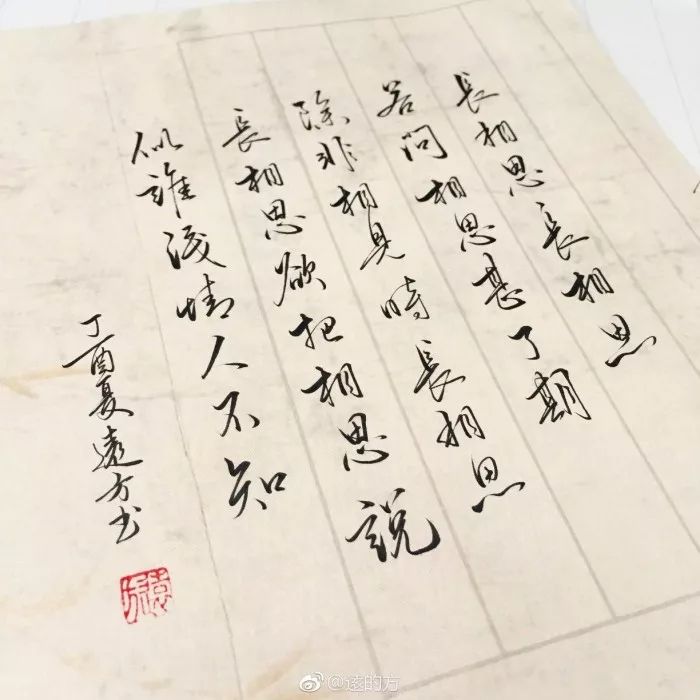 長相思長相思
若問相思甚了期
除非相見時長相思
長相思欲把相思說
似誰淺情人不知
丁酉夏遠方书
@逺的方